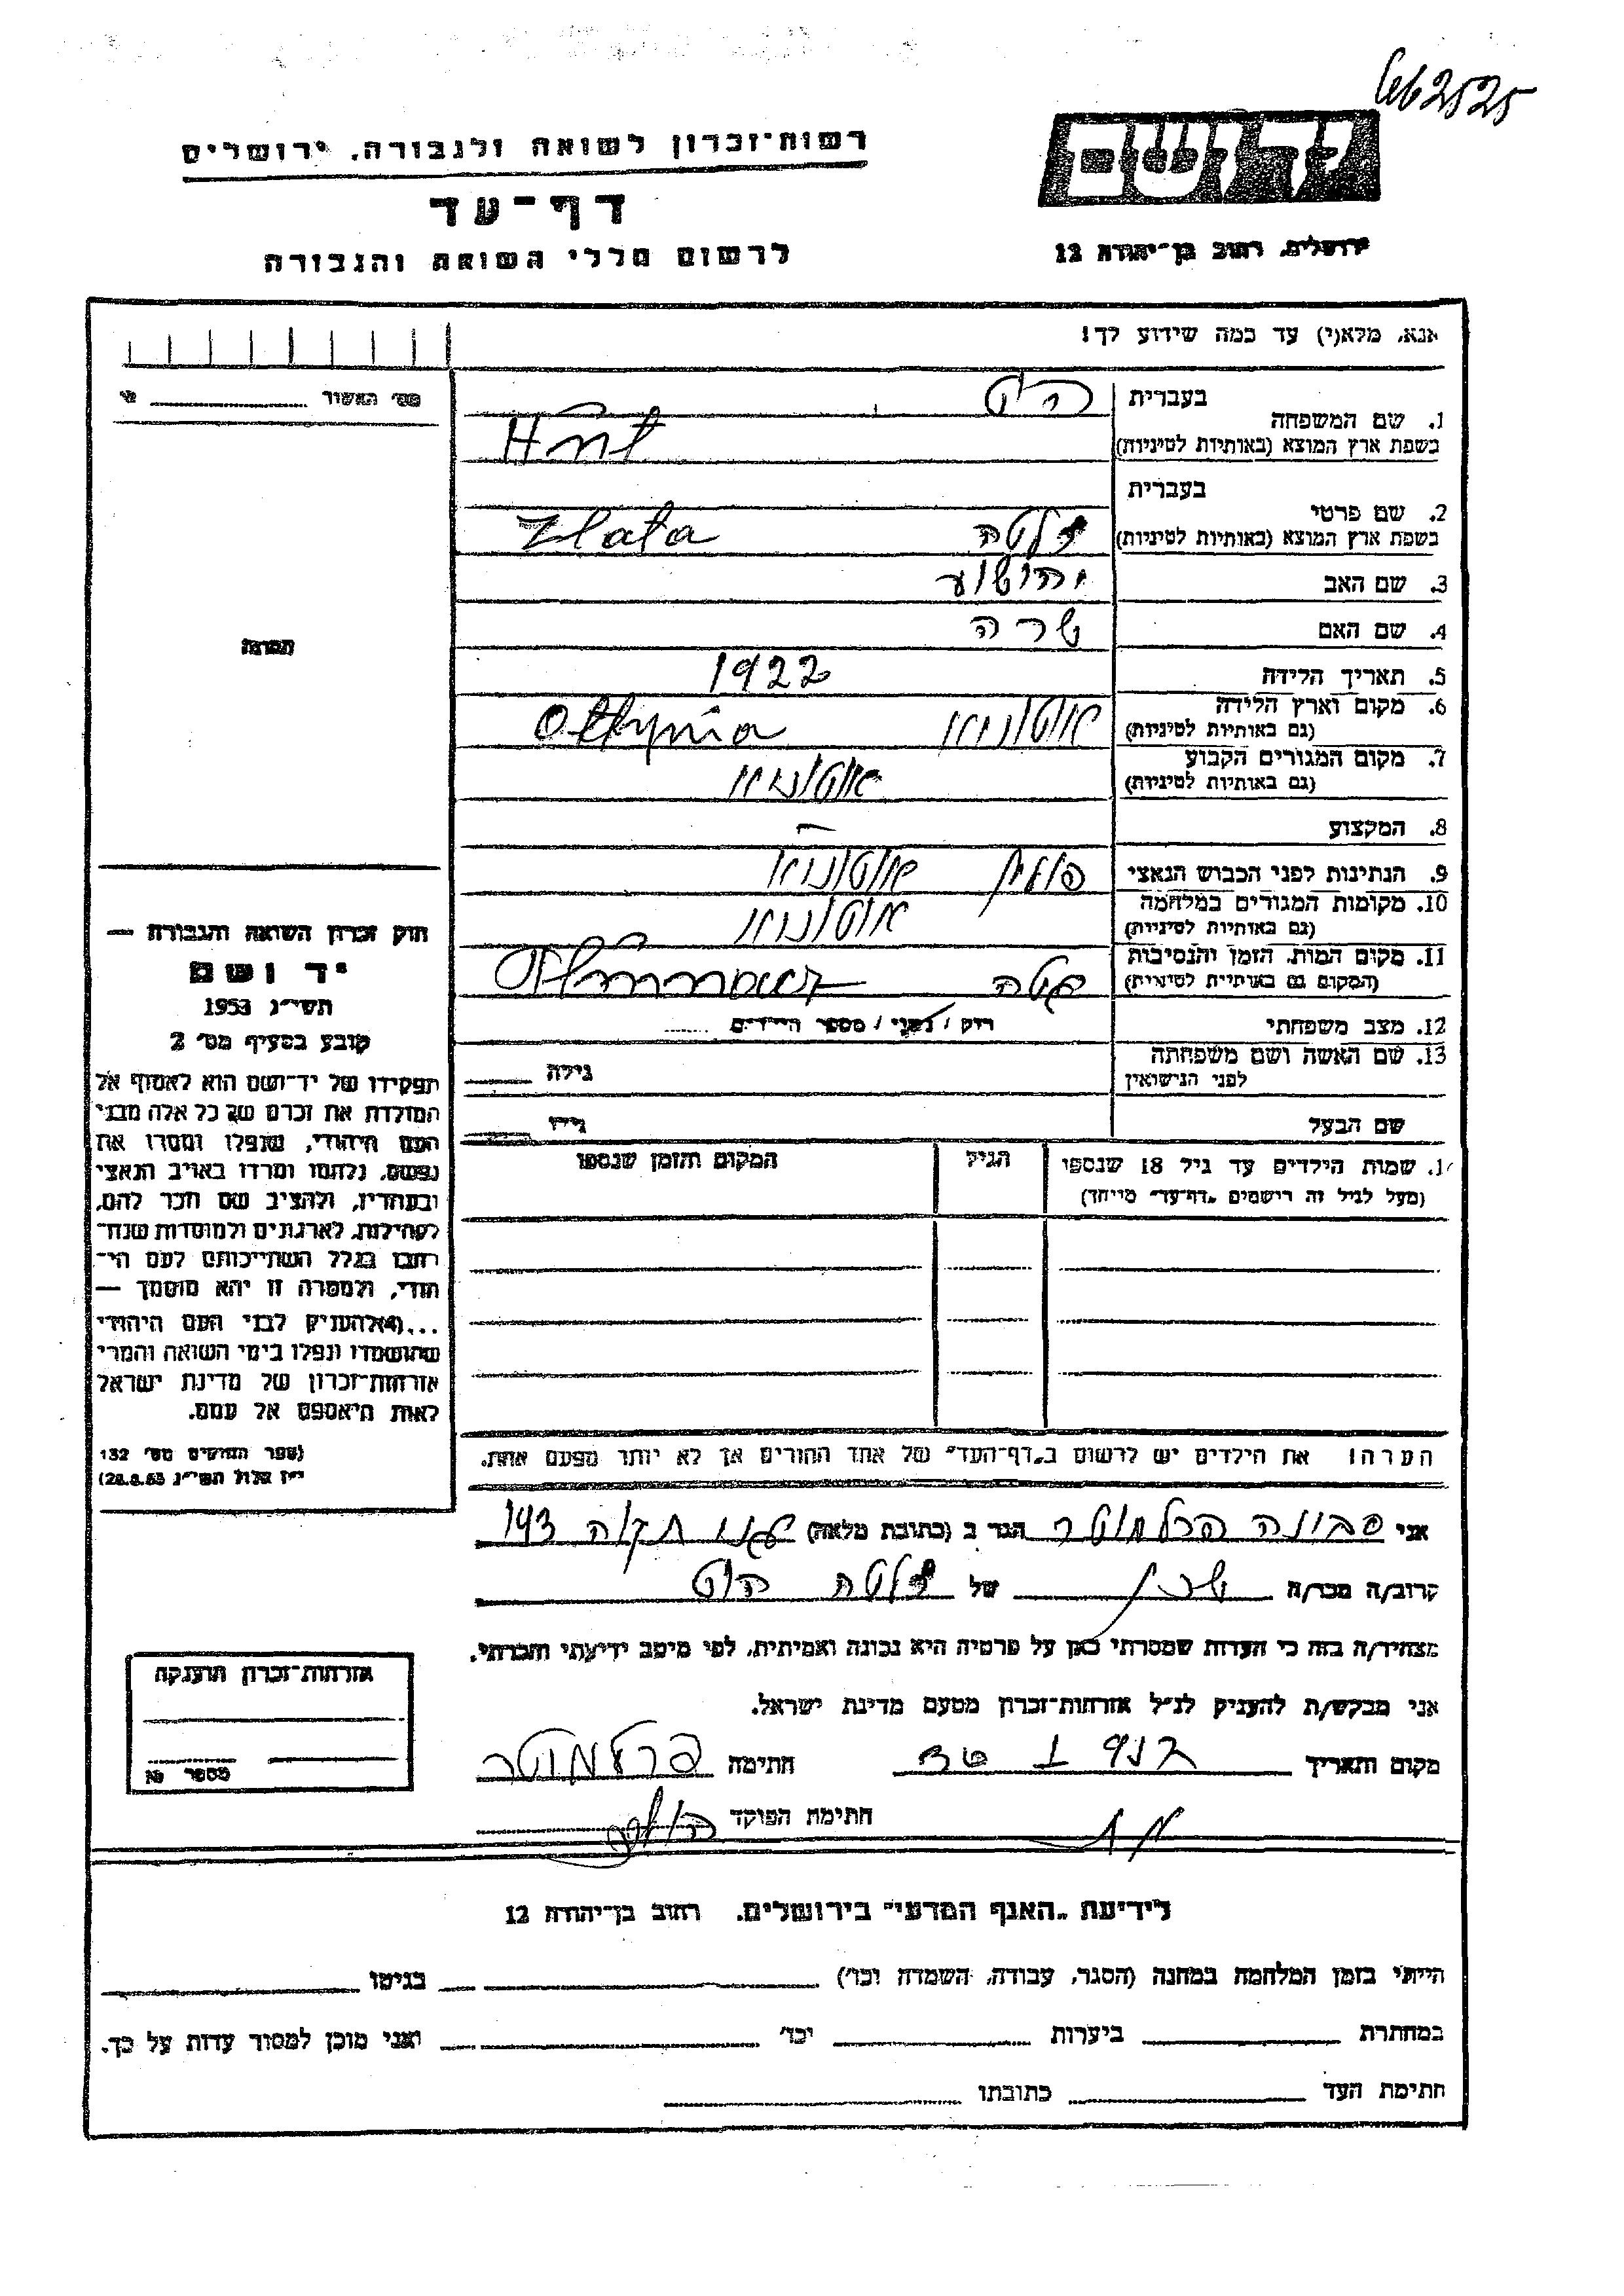 2525
רשות־זכרון לשואה ולגבורה, ירושלים
יד ושם
דף־עד
ירושלים, רחוב בן־יהודה 12
לרשום חללי השואה והגבורה
אנא, מלא(י) עד כמה שידוע לך!
מס׳ האשור
1. שם המשפחה
בעברית היט
בשפת ארץ המוצא (באותיות לטיניות)
2. שם פרטי
בעברית
בשפת ארץ המוצא (באותיות לטיניות) זלטה Zlata
3. שם האב יהושע
4. שם האם שרה
5. תאריך הלידה 1922
6. מקום וארץ הלידה
(גם באותיות לטיניות) Ottynia
7. מקום המגורים הקבוע
(גם באותיות לטיניות)
8. המקצוע —
9. הנתינות לפני הכבוש הנאצי
10. מקומות המגורים במלחמה
(גם באותיות לטיניות)
11. מקום המות, הזמן והנסיבות
(המקום גם באותיות לטיניות)
12. מצב משפחתי רוק / נשוי / מספר הילדים
13. שם האשה ושם משפחתה
לפני הנישואין גילה
שם הבעל גילו
שמות הילדים עד גיל 18 שנספו הגיל המקום והזמן שנספו
(מעל לגיל זה רישמים „דף־עד״ מייחד)
הערה! את הילדים יש לרשום ב„דף־העד״ של אחד ההורים אך לא יותר מפעם אחת.
תמונה
חוק זכרון השואה והגבורה —
יד ושם
תשי״ג 1953
קובע בסעיף מס׳ 2
תפקידו של יד־ושם הוא לאסוף אל
המולדת את זכרם של כל אלה מבני
העם היהודי, שנפלו ומסרו את
נפשם, נלחמו ומרדו באויב הנאצי
ובעוזריו, ולהציב שם וזכר להם,
לקהילות, לארגונים ולמוסדות שנח־
רבו בגלל השתייכותם לעם הי־
הודי, ולמטרה זו יהא מוסמך —
...(4) להעניק לבני העם היהודי
שהושמדו ונפלו בימי השואה והמרי
אזרחות־זכרון של מדינת ישראל
לאות היאספם אל עמם.
(ספר החוקים מס׳ 132
י״ז אלול תשי״ג 28.8.53)
אני הגר ב (כתובת מלאה) 143
קרוב/ה מכר/ה שכן של זלטה היט
מצהיר/ה בזה כי העדות שמסרתי כאן על פרטיה היא נכונה ואמיתית, לפי מיטב ידיעתי והכרתי.
אני מבקש/ת להעניק לנ״ל אזרחות־זכרון מטעם מדינת ישראל.
מקום ותאריך חתימה
חתימת הפוקד
אזרחות־זכרון הוענקה
מספר
לידיעת „האגף המדעי״ בירושלים, רחוב בן־יהודה 12
הייתי בזמן המלחמה במחנה (הסגר, עבודה, השמדה וכו׳) בגיטו
במחתרת ביערות וכו׳ ואני מוכן למסור עדות על כך.
חתימת העד כתובתו